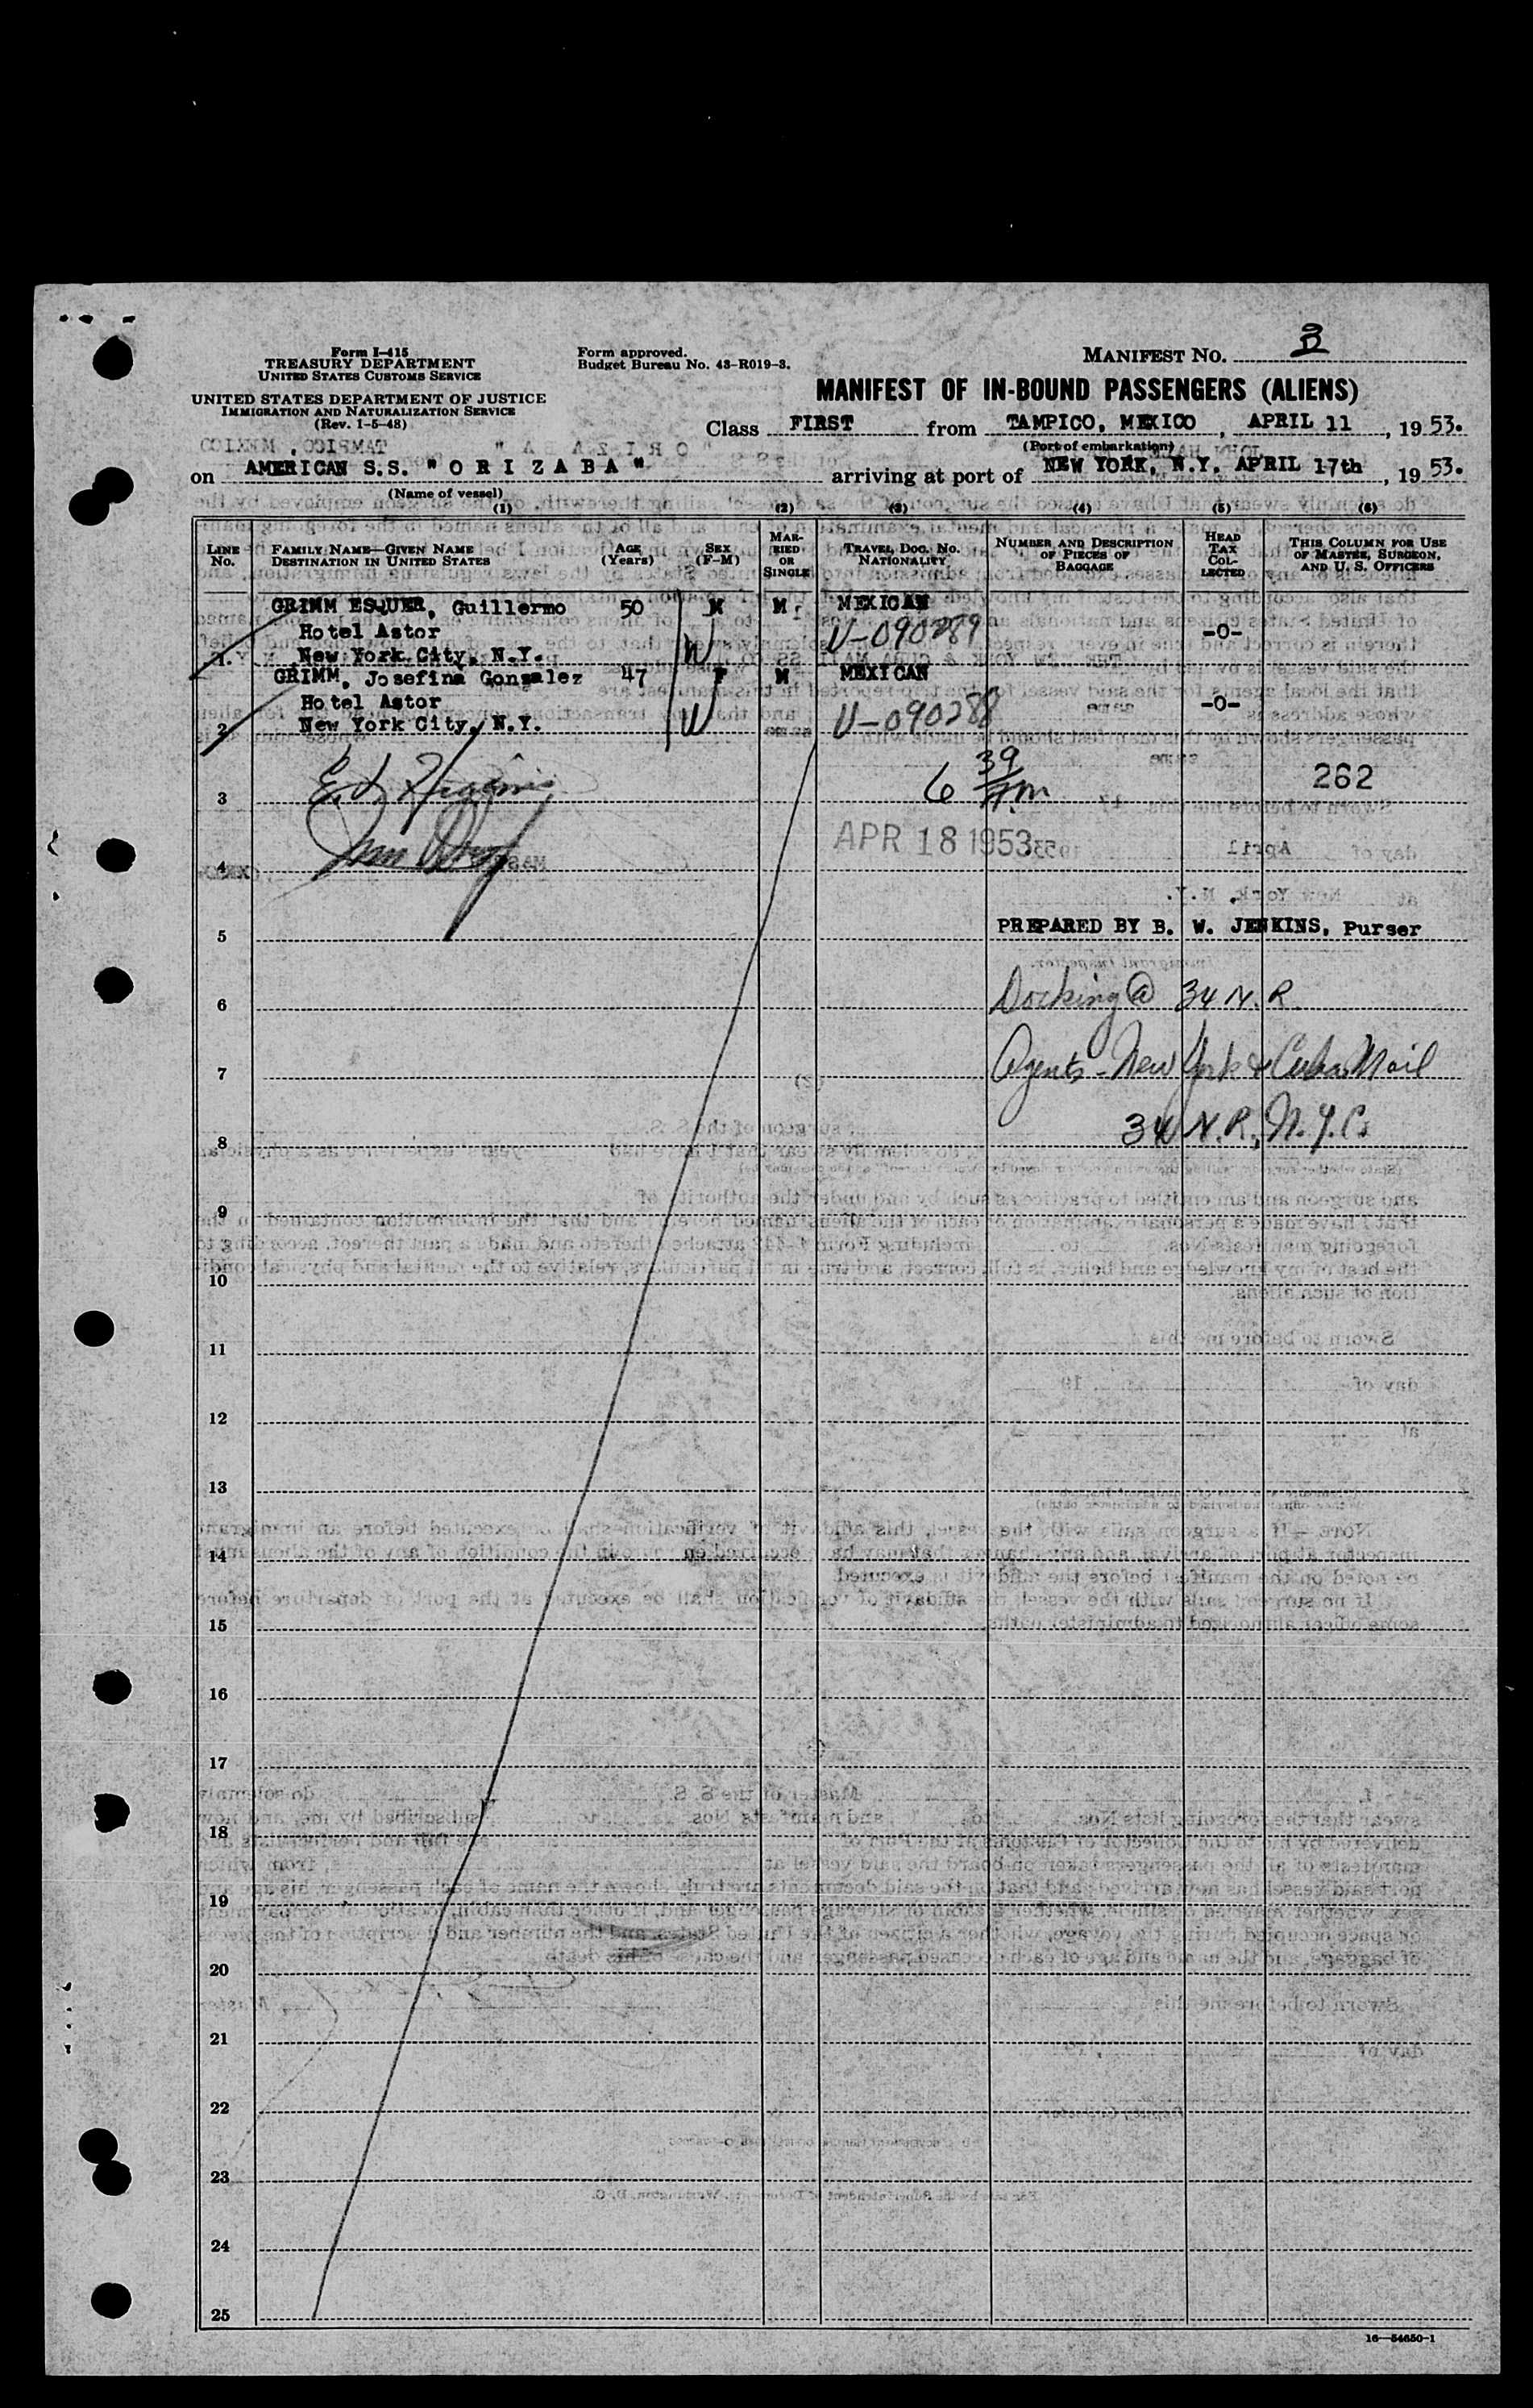 Form I-415
TREASURY DEPARTMENT
UNITED STATES CUSTOMS SERVICE
UNITED STATES DEPARTMENT OF JUSTICE
IMMIGRATION AND NATURALIZATION SERVICE
(Rev. 1-5-48)
Form approved.
Budget Bureau No. 43-R019-3.
MANIFEST NO. 3
MANIFEST OF IN-BOUND PASSENGERS (ALIENS)
Class FIRST from TAMPICO, MEXICO, APRIL 11, 1953.
(Port of embarkation)
on AMERICAN S.S. "O R I Z A B A" arriving at port of NEW YORK, N.Y. APRIL 17th, 1953.
(Name of vessel)
(1) (2) (3) (4) (5) (6)
LINE NO. FAMILY NAME—GIVEN NAME DESTINATION IN UNITED STATES AGE (YEARS) SEX (F-M) MARRIED OR SINGLE TRAVEL DOC. NO. NATIONALITY NUMBER AND DESCRIPTION OF PIECES OF BAGGAGE HEAD TAX COLLECTED THIS COLUMN FOR USE OF MASTER, SURGEON, AND U. S. OFFICERS
GRIMM ESQUER, Guillermo 50 M M MEXICAN
Hotel Astor V-090289 -0-
1. New York City, N.Y. W
GRIMM, Josefina Gonzalez 47 F M MEXICAN
Hotel Astor -0-
2 New York City, N.Y. W V-090288
6 39 P.M.
3 262
APR 18 1953
4
PREPARED BY B. W. JENKINS, Purser
5
6 Docking @ 34 N.R.
7 Agents - New York & Cuba Mail
8 34 N.R., N.Y.C.
9
10
11
12
13
14
15
16
17
18
19
20
21
22
23
24
25
16—54650-1